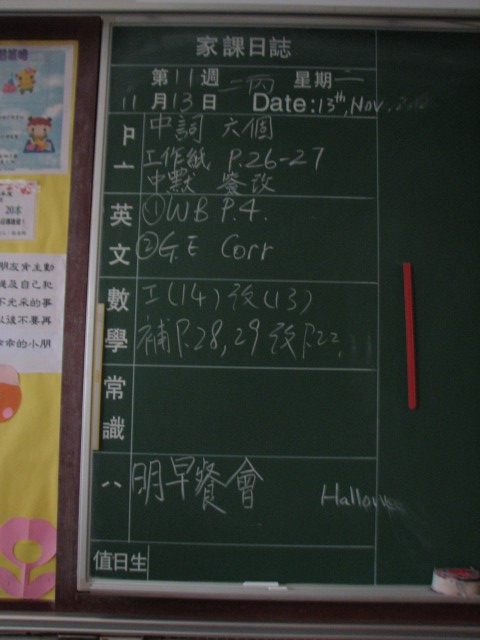 家課日誌
第11週 二丙 星期二
11月13日 Date: 13th, Nov.
中詞 六個
工作紙 P.26-27
中默 簽改
英文
①WB P.4.
②G.E Corr
數學
工(14) 改(13)
補P.28, 29 改P.22,
常識
明早餐會
值日生
20本
朋友肯主動
及自己犯
不光采的事
以後不要再
的小朋